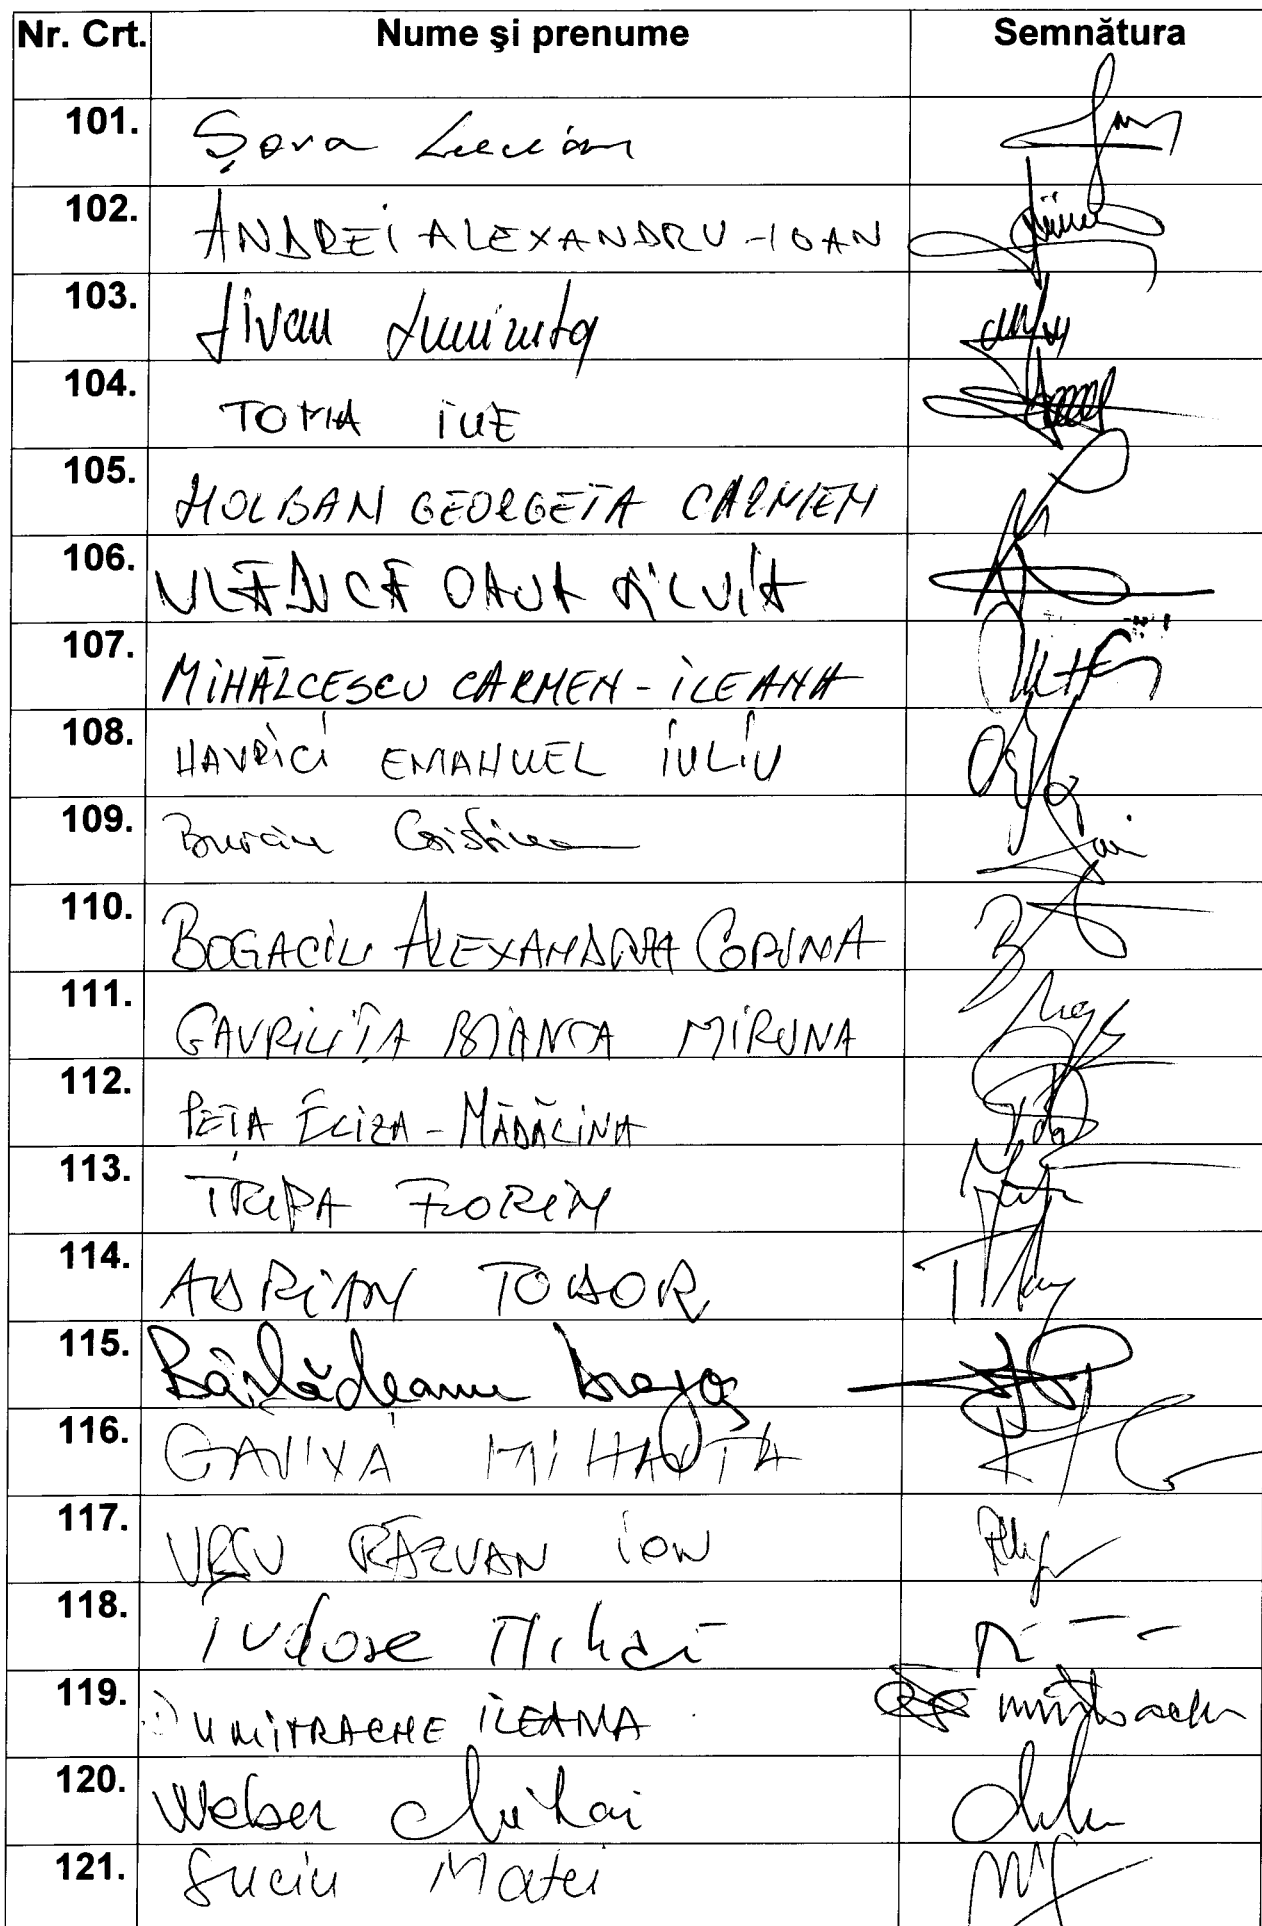 Nr. Crt. Nume şi prenume Semnătura
101. Şova Lucian
102. ANDREI ALEXANDRU-IOAN
103. Jivan Luminița
104. TOMA ILIE
105. HOLBAN GEORGETA CARMEN
106. VLĂDUCĂ OANA SILVIA
107. MIHĂLCESCU CARMEN-ILEANA
108. HAVRICI EMANUEL IULIU
109. Burciu Cristina
110. BOGACIU ALEXANDRA CORINA
111. GAVRILIȚA BIANCA MIRUNA
112. PEȚA ELIZA-MĂDĂLINA
113. TRIPA FLORIN
114. ADRIAN TODOR
115. Bârlădeanu Dragoş
116. MIHAITA
117. URSU RĂZVAN ION
118. Tudose Mihai
119. DUMITRACHE ILEANA
120. Weber Mihai
121. Suciu Matei